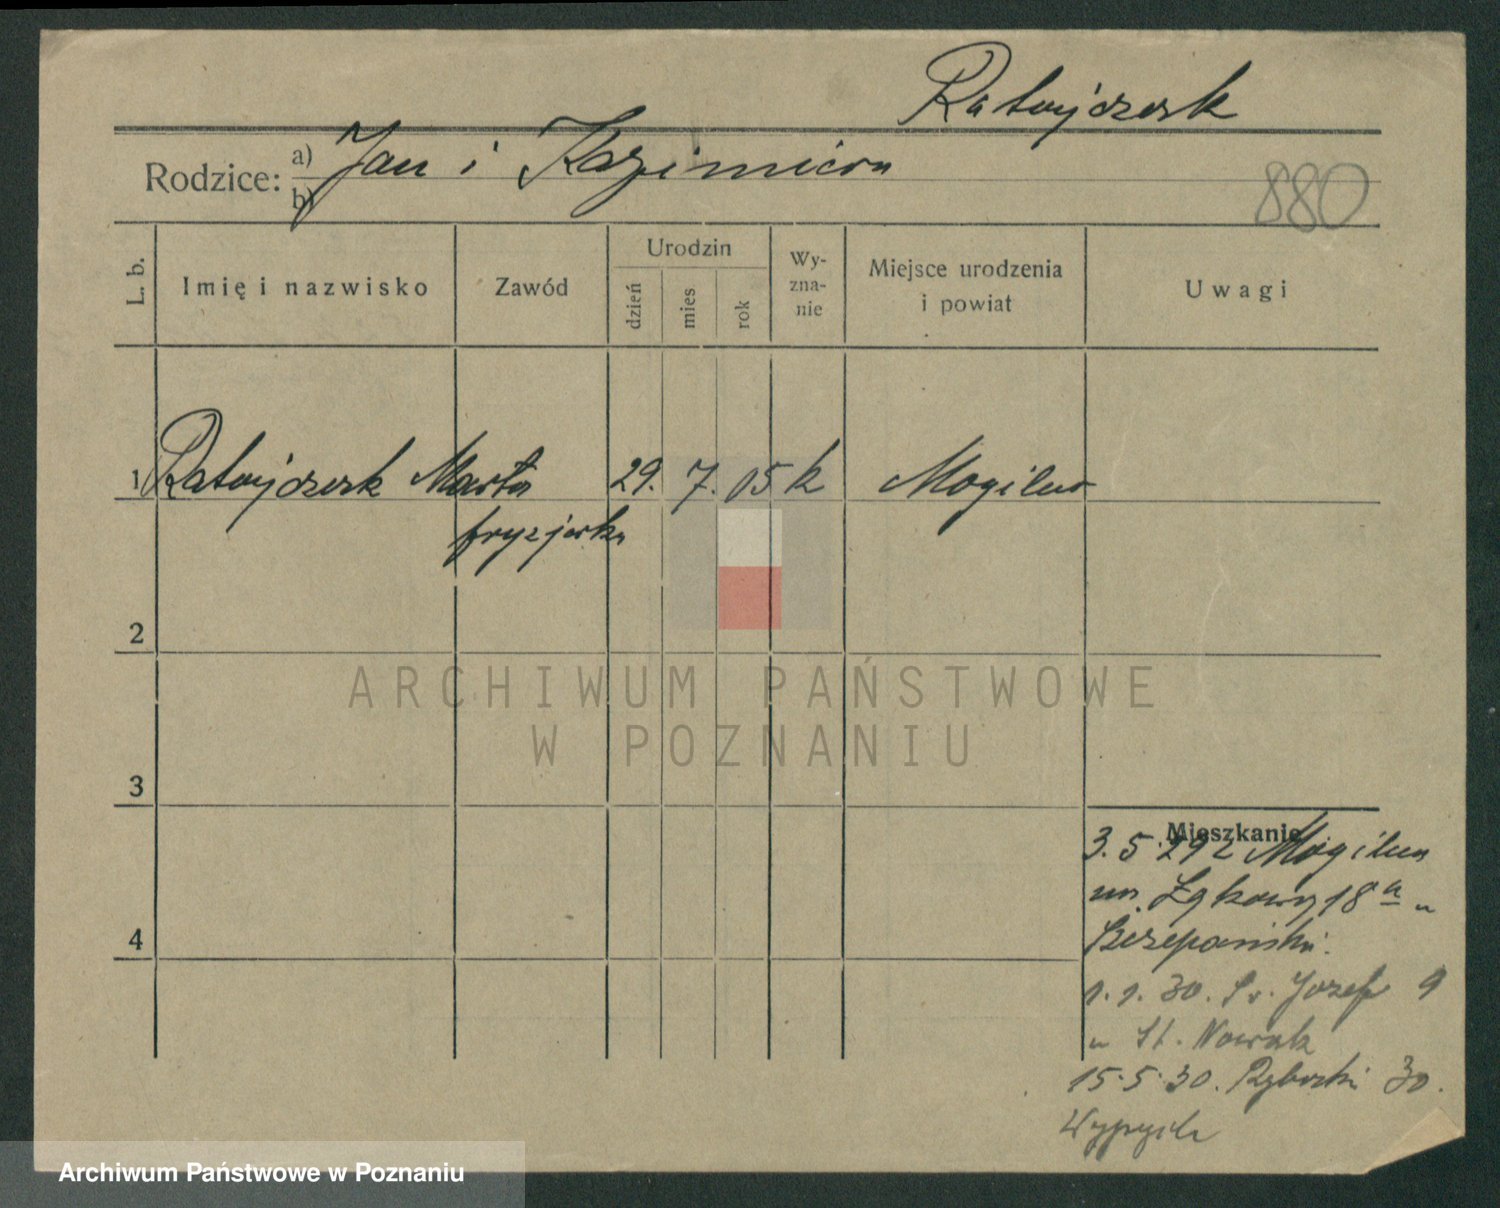 Ratajczak
Rodzice: a) Jan i Kazimiera
b)
880
L. b.
Imię i nazwisko
Zawód
Urodzin
dzień
mies
rok
Wy-
zna-
nie
Miejsce urodzenia
i powiat
Uwagi
1 Ratajczak Marta 29. 7. 05 k Mogilno
fryzjerka
2
3
4
ARCHIWUM PAŃSTWOWE
W POZNANIU
Mieszkanie
3.5.29 z Mogilna
18 a u
Szczepański.
1.1.30. Św. Józefa 9
u St. Nowak
15.5.30. Rybaki 30.
Wypych
Archiwum Państwowe w Poznaniu